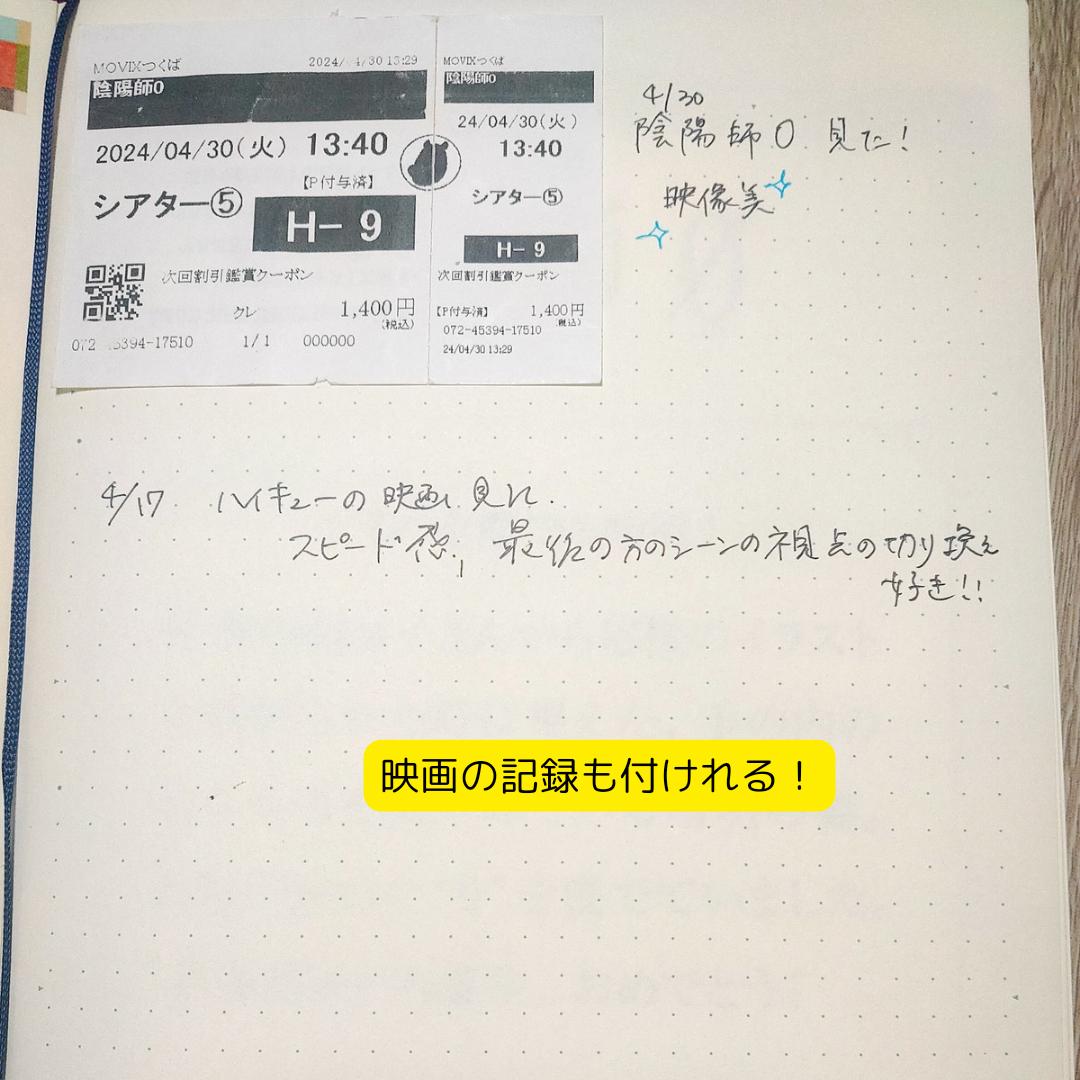 MOVIXつくば 2024/ 4/30 13:29
陰陽師0
2024/04/30(火) 13:40
【P付与済】
シアター⑤
H- 9
次回割引鑑賞クーポン
クレ 1,400円
(税込)
072 5394-17510 1/1 000000
MOVIXつくば
陰陽師0
24/04/30(火)
13:40
シアター⑤
H- 9
次回割引鑑賞クーポン
【P付与済】 1,400円
(税込)
072-45394-17510
24/04/30 13:29
4/30
陰陽師0 見た!
映像美
4/17 ハイキューの映画見た.
スピード感, 最後の方のシーンの視点の切り換え
好き!!
映画の記録も付けれる!